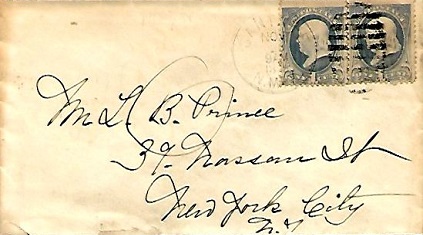 Mr L. B. Prince
37. Nassau St
New York City
N.Y